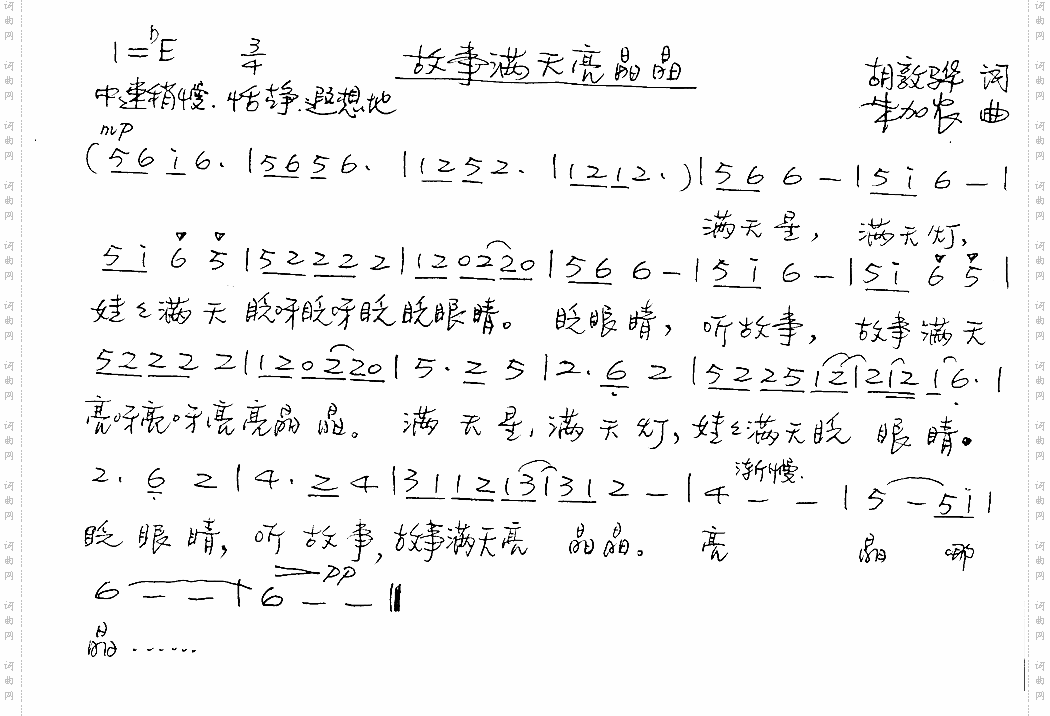 1=bE 3/4 故事满天亮晶晶
中速稍慢.恬静.遐想地 胡敦骅 词
朱加农 曲
mp
(5 6 i 6. | 5 6 5 6. | 1 2 5 2. | 1 2 1 2. ) | 5 6 6 - | 5 i 6 - |
满天星, 满天灯,
5 i 6 5 | 5 2 2 2 2 | 1 2 0 2 2 0 | 5 6 6 - | 5 i 6 - | 5 i 6 5 |
娃々满天 眨呀眨呀眨眨眼睛。 眨眼睛, 听故事, 故事满天
5 2 2 2 2 | 1 2 0 2 2 0 | 5. 2 5 | 2. 6 2 | 5 2 2 5 1 2 | 2 1 2 1 6. |
亮呀亮呀亮亮晶晶。 满天星,满天灯,娃々满天眨 眼睛。
2. 6 2 | 4. 2 4 | 3 1 1 2 1 3 1 3 1 2 - | 4 - - | 5 - 5 i |
渐慢.
眨眼睛, 听故事,故事满天亮 晶晶。 亮 晶 哪
6 - - | 6 - - ||
pp
晶……